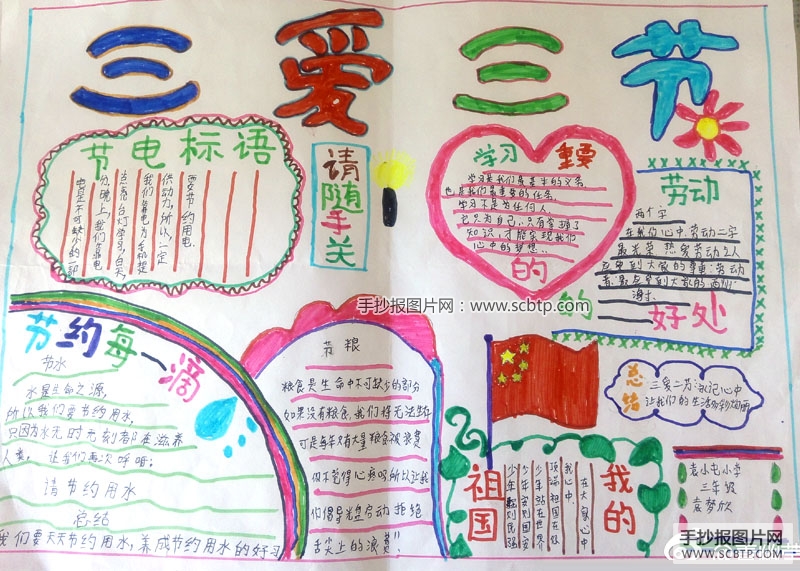 三爱三节
节电标语
电是不可缺少的一部
分,晚上,我们靠电
点台灯学习,白天,
我们靠电为手机提
供动力,所以,一定
要节约用电
请随手关
学习 重要
学习是我们最基本的义务
也是我们最重要的任务
学习不是为任何人
它只为自己,只有掌握了
知识,才能实现我们
心中的梦想..
的
劳动
两个字
在我们心中,劳动二字
最光荣 热爱劳动之人
应受到大家的尊重:劳动
者
谢谢
的
好处
手抄报图片网:www.scbtp.com
节约每一滴
节水
水是生命之源,
所以我们要节约用水,
只因为水无时无刻都在滋养
人类, 让我们再次呼唤:
请节约用水
总结
我们要天天节约用水,养成节约用水的好习
节粮
粮食是生命中不可缺少的部分
如果没有粮食,我们将无法生存
可是每年有大量粮食被浪费
你不觉得心疼吗所以让我
们倡导光盘行动 拒绝
舌尖上的浪费"!
总结
三爱二为 记心中
让我们的生活
我的
祖国
在大家心中
我心中
顶端祖国在你
少年站在世界
少年安则国安
少年强则国强
袁小屯小学
三年级
袁梦欣
手抄报图片网
WWW.SCBTP.COM